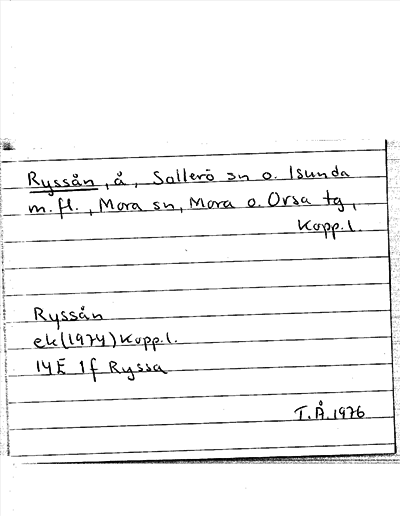 Ryssån, å, Sollerö sn o. Isunda
m.fl., Mora sn, Mora o. Orsa tg,
Kopp.l.
Ryssån
ek(1974)Kopp.l.
14E 1f Ryssa
T.Å.1976